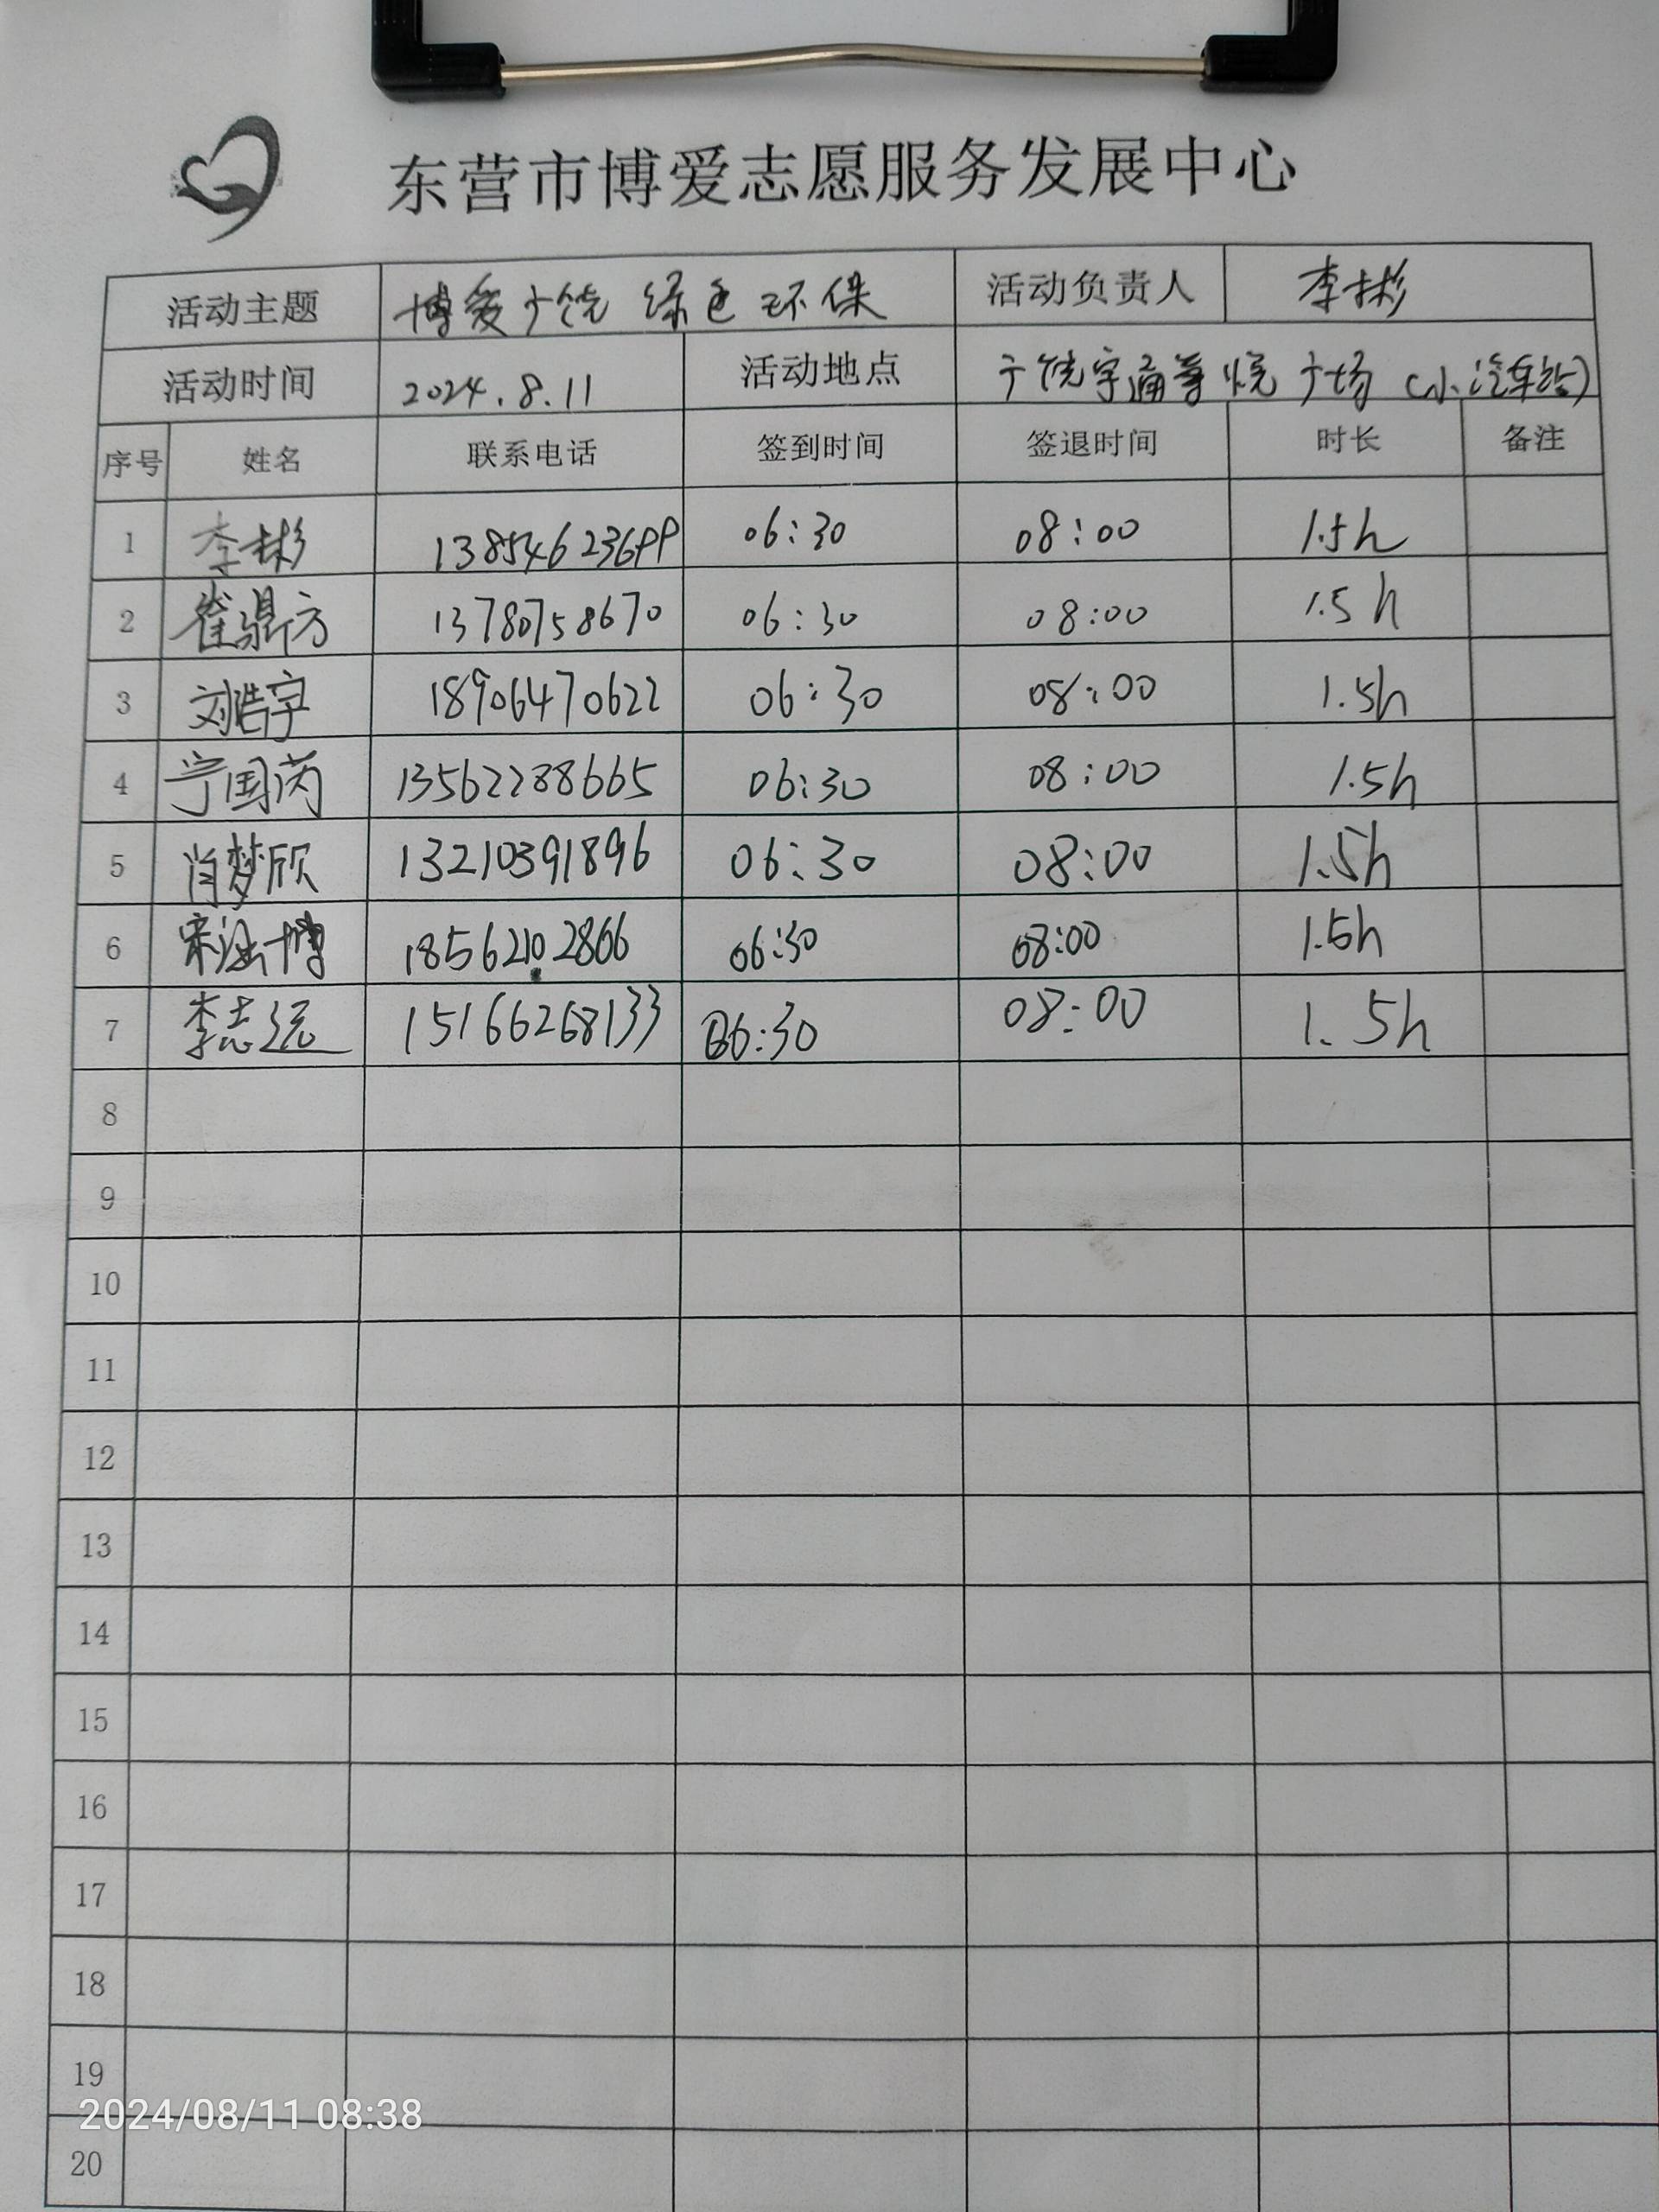 东营市博爱志愿服务发展中心
活动主题 博爱广饶 绿色环保 活动负责人 李彬
活动时间 2024.8.11 活动地点 广饶宇通尊悦广场(小汽车站)
序号 姓名 联系电话 签到时间 签退时间 时长 备注
1 李彬 13854623699 06:30 08:00 1.5h
2 崔鼎方 13780758670 06:30 08:00 1.5h
3 刘浩宇 18906470622 06:30 08:00 1.5h
4 宁国芮 13562288665 06:30 08:00 1.5h
5 肖梦欣 13210391896 06:30 08:00 1.5h
6 18562102866 06:30 08:00 1.5h
7 李志远 15166268133 06:30 08:00 1.5h
8
9
10
11
12
13
14
15
16
17
18
19
2024/08/11 08:38
20